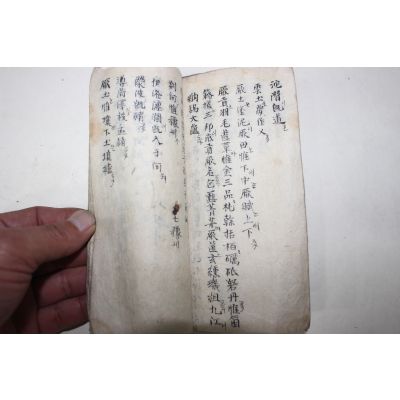 沱潛既道
雲土夢作乂
厥土塗泥厥田惟下中厥賦上下
厥貢羽毛齒革惟金三品杶榦栝柏礪砥砮丹惟箘
簵楛三邦底貢厥名包匭菁茅厥篚玄纁璣組九江
納錫大龜
七豫州
荊河惟豫州
伊洛瀍澗既入于河
滎波既豬
導菏澤被孟豬
厥土惟壤下土墳壚